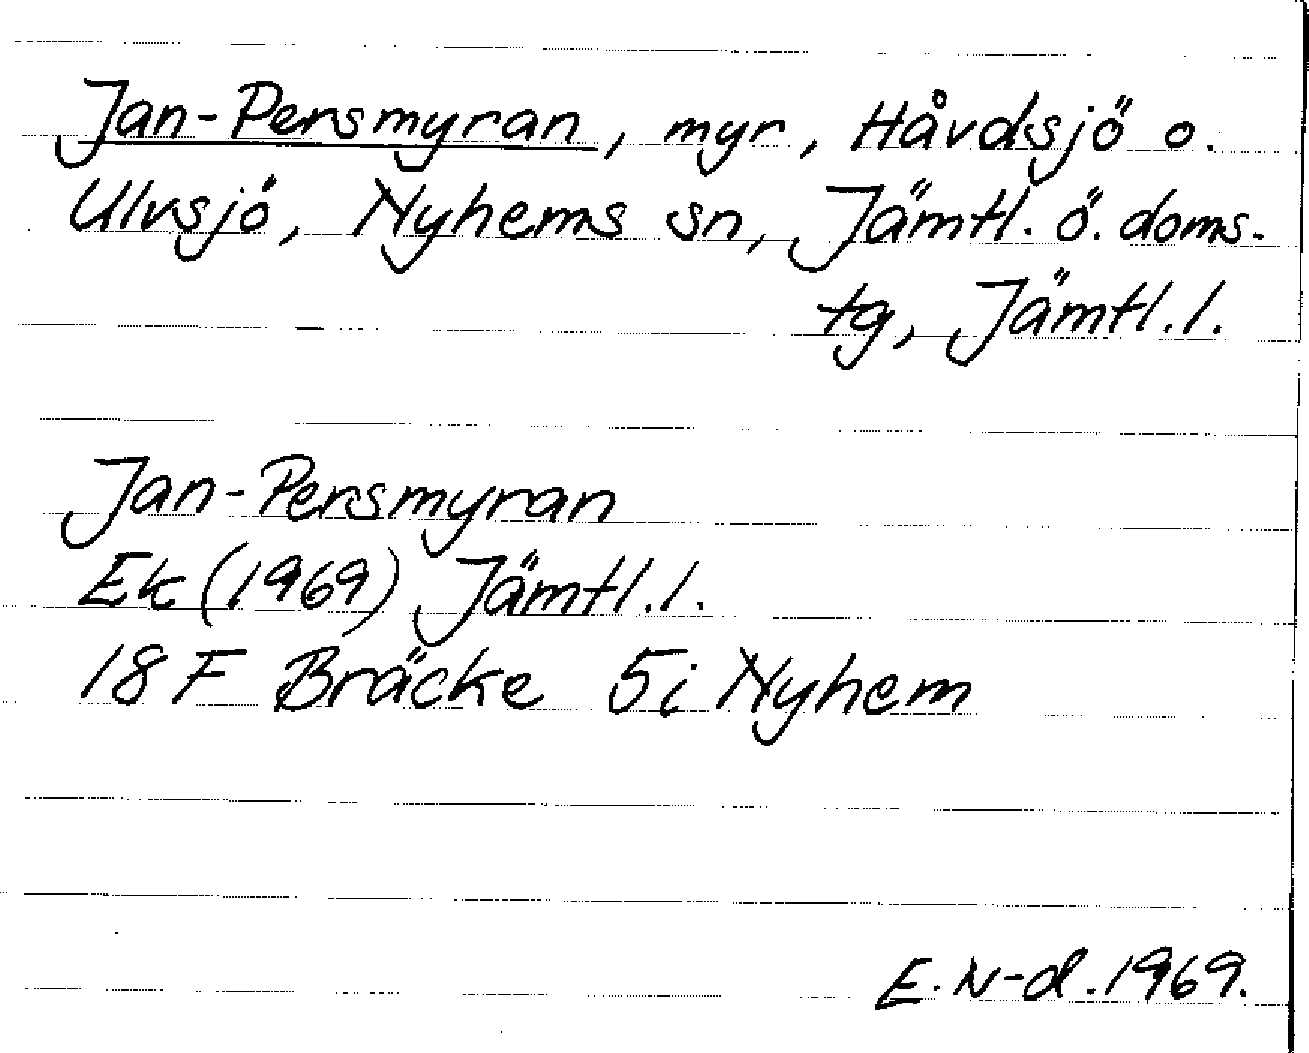 Jan-Persmyran, myr, Håvdsjö o.
Ulvsjö, Nyhems sn, Jämtl. ö. doms-
tg, Jämtl. l.
Jan-Persmyran
Ek (1969) Jämtl. l.
18 F Bräcke 5i Nyhem
E. N-d. 1969.